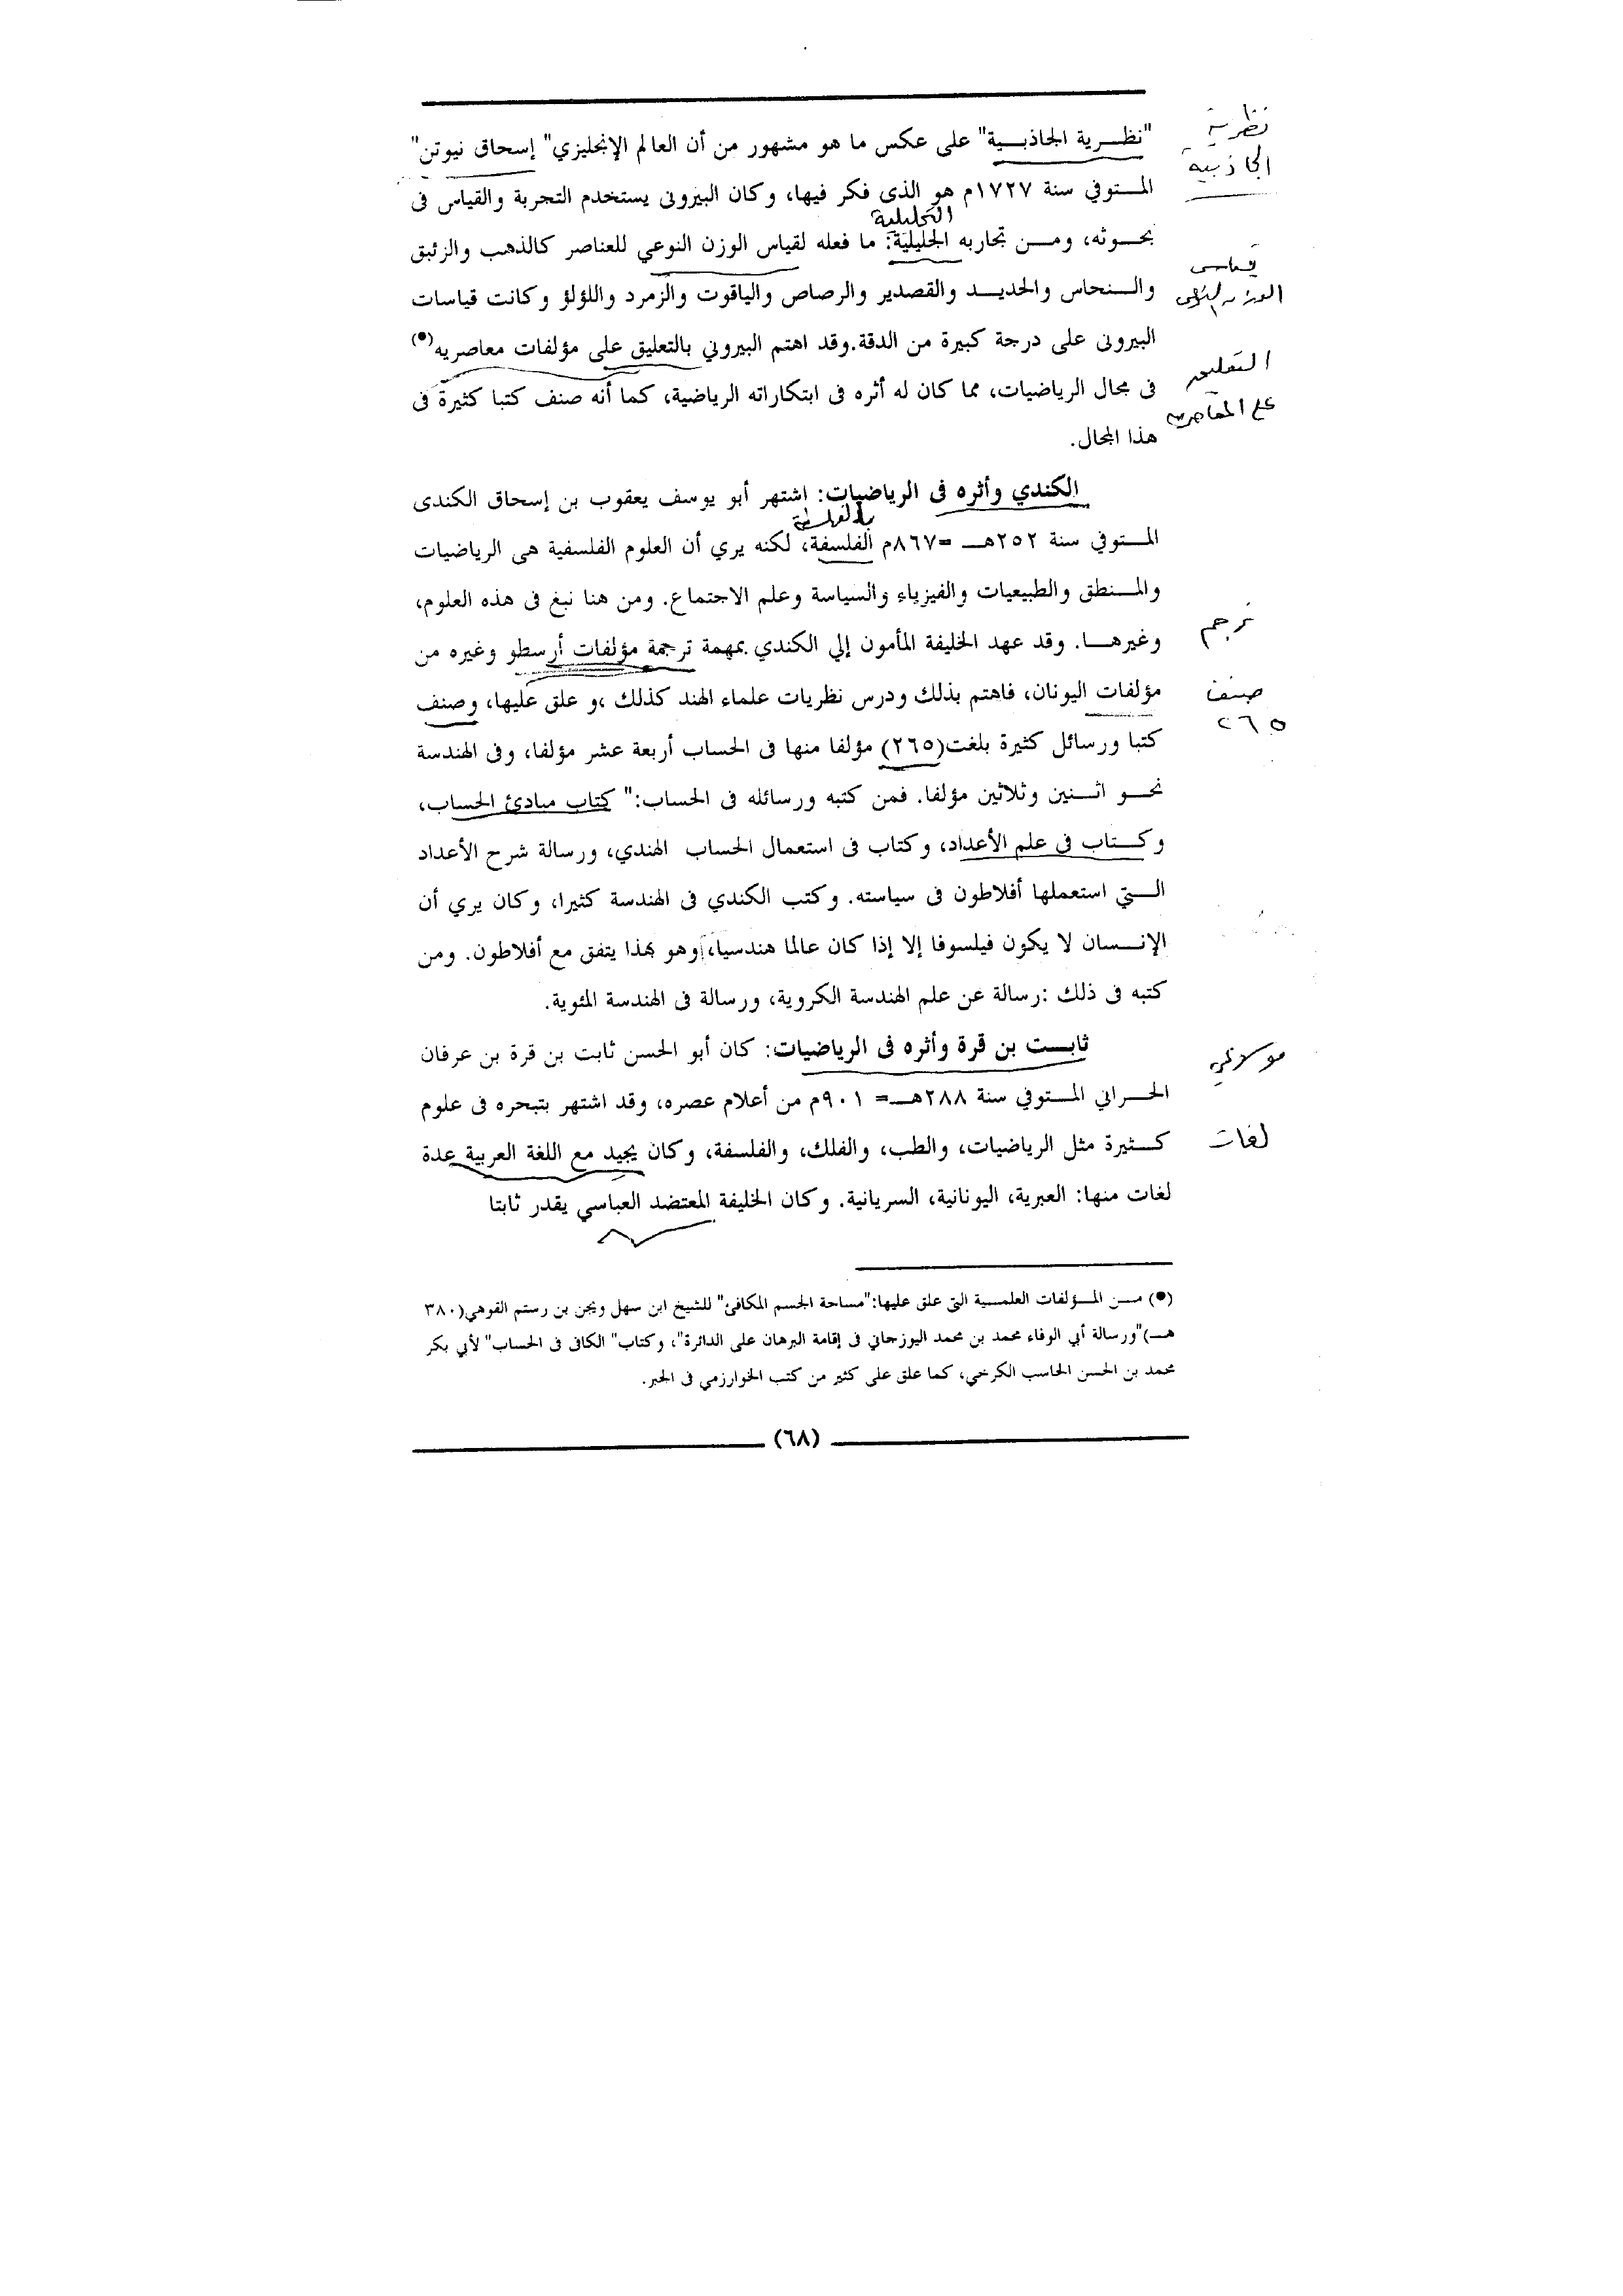 "نظرية الجاذبية" على عكس ما هو مشهور من أن العالم الإنجليزي" إسحاق نيوتن"
المتوفي سنة ١٧٢٧م هو الذى فكر فيها، وكان البيرونى يستخدم التجربة والقياس فى
التحليلية
بحوثه، ومن تجاربه الجليلية: ما فعله لقياس الوزن النوعي للعناصر كالذهب والزئبق
والنحاس والحديد والقصدير والرصاص والياقوت والزمرد واللؤلؤ وكانت قياسات
البيرونى على درجة كبيرة من الدقة.وقد اهتم البيروني بالتعليق على مؤلفات معاصريه(•)
فى مجال الرياضيات، مما كان له أثره فى ابتكاراته الرياضية، كما أنه صنف كتبا كثيرة فى
هذا المجال.
نظرية
الجاذبية
قياس
الوزن النوعى
التعليق
على المعاصرين
الكندي وأثره فى الرياضيات: اشتهر أبو يوسف يعقوب بن إسحاق الكندى
بالفلسفة
المتوفي سنة ٢٥٢هـ =٨٦٧م الفلسفة، لكنه يري أن العلوم الفلسفية هى الرياضيات
والمنطق والطبيعيات والفيزياء والسياسة وعلم الاجتماع. ومن هنا نبغ فى هذه العلوم،
وغيرها. وقد عهد الخليفة المأمون إلي الكندي بمهمة ترجمة مؤلفات أرسطو وغيره من
مؤلفات اليونان، فاهتم بذلك ودرس نظريات علماء الهند كذلك ،و علق عليها، وصنف
كتبا ورسائل كثيرة بلغت(٢٦٥) مؤلفا منها فى الحساب أربعة عشر مؤلفا، وفى الهندسة
نحو اثنين وثلاثين مؤلفا. فمن كتبه ورسائله فى الحساب:" كتاب مبادئ الحساب،
وكتاب فى علم الأعداد، وكتاب فى استعمال الحساب الهندي، ورسالة شرح الأعداد
التي استعملها أفلاطون فى سياسته. وكتب الكندي فى الهندسة كثيرا، وكان يري أن
الإنسان لا يكون فيلسوفا إلا إذا كان عالما هندسيا، وهو بهذا يتفق مع أفلاطون. ومن
كتبه فى ذلك :رسالة عن علم الهندسة الكروية، ورسالة فى الهندسة المئوية.
ترجم
صنف
٢٦٥
ثابت بن قرة وأثره فى الرياضيات: كان أبو الحسن ثابت بن قرة بن عرفان
الحراني المتوفي سنة ٢٨٨هـ= ٩٠١م من أعلام عصره، وقد اشتهر بتبحره فى علوم
كثيرة مثل الرياضيات، والطب، والفلك، والفلسفة، وكان يجيد مع اللغة العربية عدة
لغات منها: العبرية، اليونانية، السريانية. وكان الخليفة المعتضد العباسي يقدر ثابتا
لغات
(•) من المؤلفات العلمية التى علق عليها:"مساحة الجسم المكافئ" للشيخ ابن سهل ويجن بن رستم القوهي(٣٨٠
هـ)"ورسالة أبي الوفاء محمد بن محمد اليوزجاني فى إقامة البرهان على الدائرة"، وكتاب" الكافى فى الحساب" لأبي بكر
محمد بن الحسن الحاسب الكرخي، كما علق على كثير من كتب الخوارزمي فى الجبر.
(٦٨)